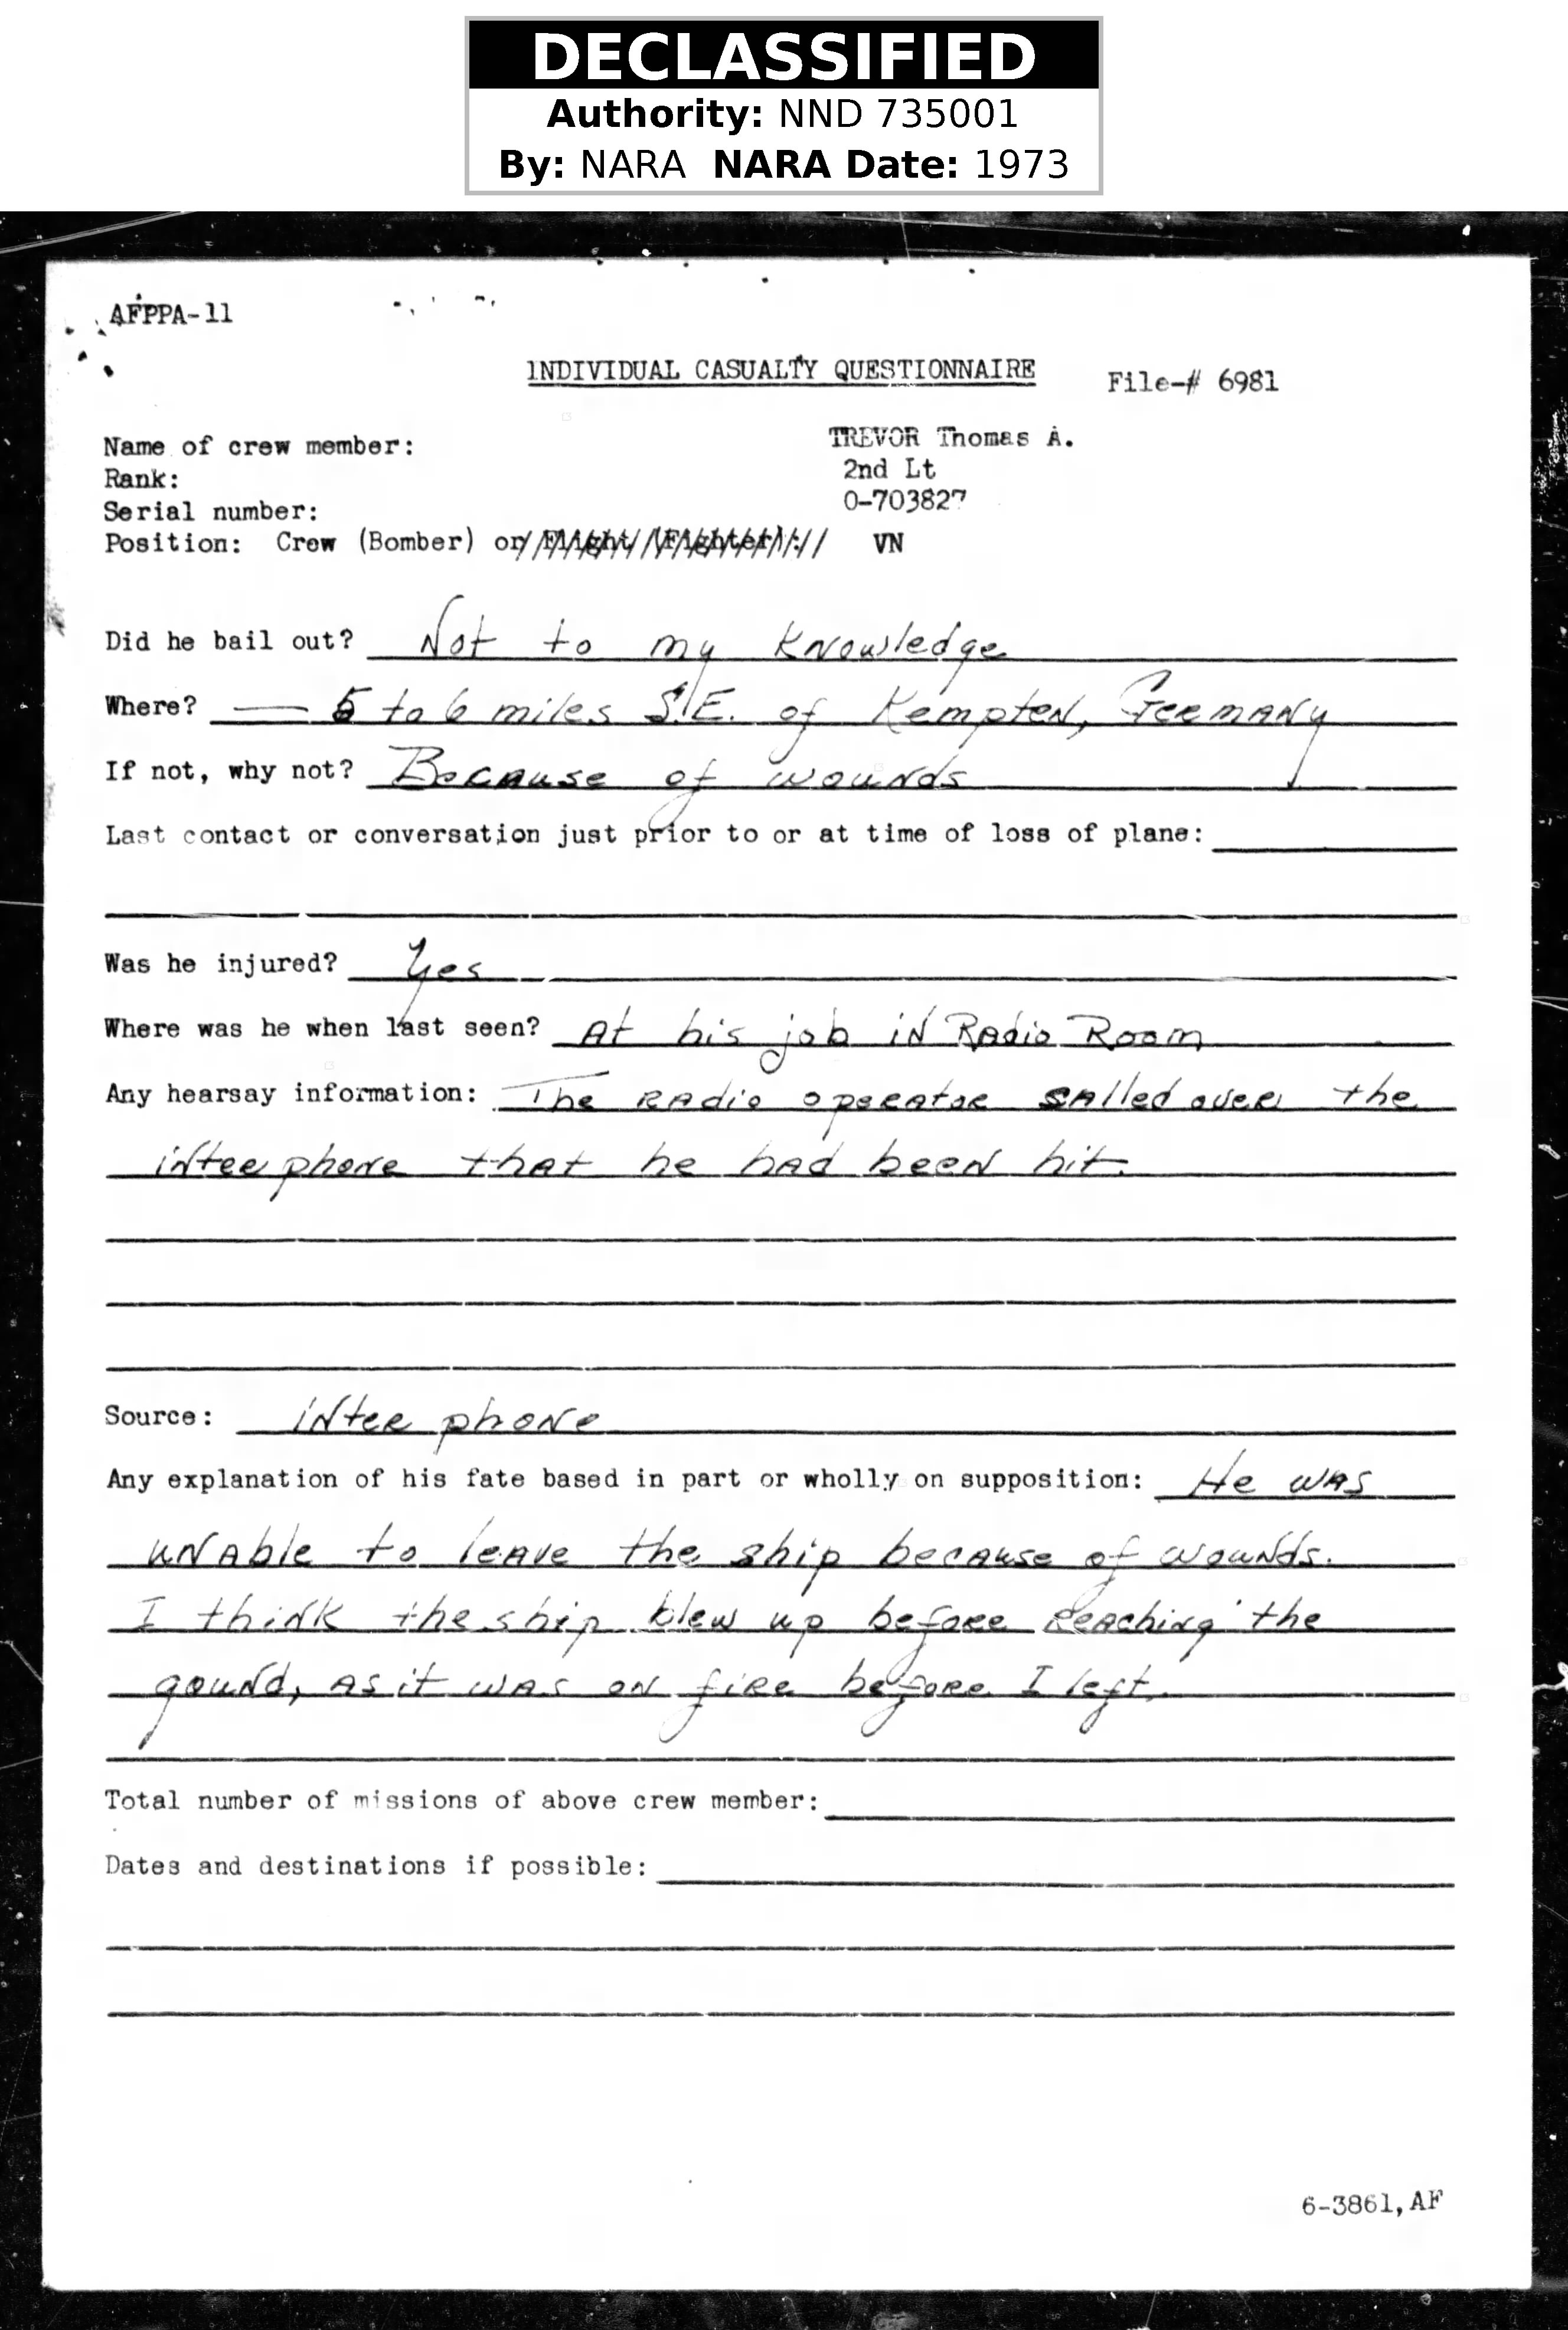 DECLASSIFIED
Authority: NND 735001
By: NARA NARA Date: 1973
AFPPA-11
INDIVIDUAL CASUALTY QUESTIONNAIRE File-# 6981
Name of crew member: TREVOR Thomas A.
Rank: 2nd Lt
Serial number: O-703827
Position: Crew (Bomber) or Flight (Fighter): VN
Did he bail out? Not to my knowledge
Where? — 5 to 6 miles S.E. of Kempten, Germany
If not, why not? Because of wounds
Last contact or conversation just prior to or at time of loss of plane:
Was he injured? Yes
Where was he when last seen? At his job in Radio Room
Any hearsay information: The radio operator called over the
interphone that he had been hit.
Source: inter phone
Any explanation of his fate based in part or wholly on supposition: He was
unable to leave the ship because of wounds.
I think the ship blew up before reaching the
gound, as it was on fire before I left.
Total number of missions of above crew member:
Dates and destinations if possible:
6-3861, AF